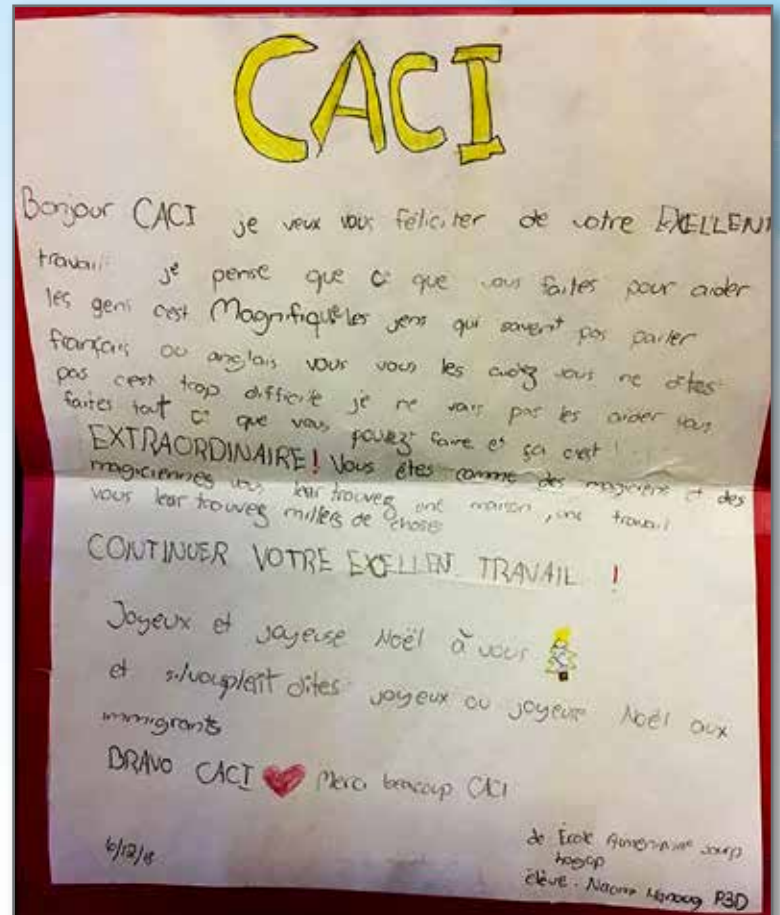 CACI
Bonjour CACI je veux vous féliciter de votre EXELLENT
travail je pense que ce que vous faites pour aider
les gens c'est Magnifique les jens qui savent pas parler
français ou anglais vous vous les aidez vous ne dites
pas c'est trop difficile je ne vais pas les aider vous
faites tout ce que vous pouvez faire et ça c'est
EXTRAORDINAIRE! Vous êtes comme des magiciens et des
magiciennes vous leur trouvez une maison, une travail
vous leur trouvez milliers de choses
CONTINUER VOTRE EXELLENT TRAVAIL !
Joyeux et joyeuse Noël à vous
et silvoupleît dites joyeux ou joyeuse Noël aux
immigrants
BRAVO CACI Merci beacoup CACI
6/12/18
de École
élève. P3D